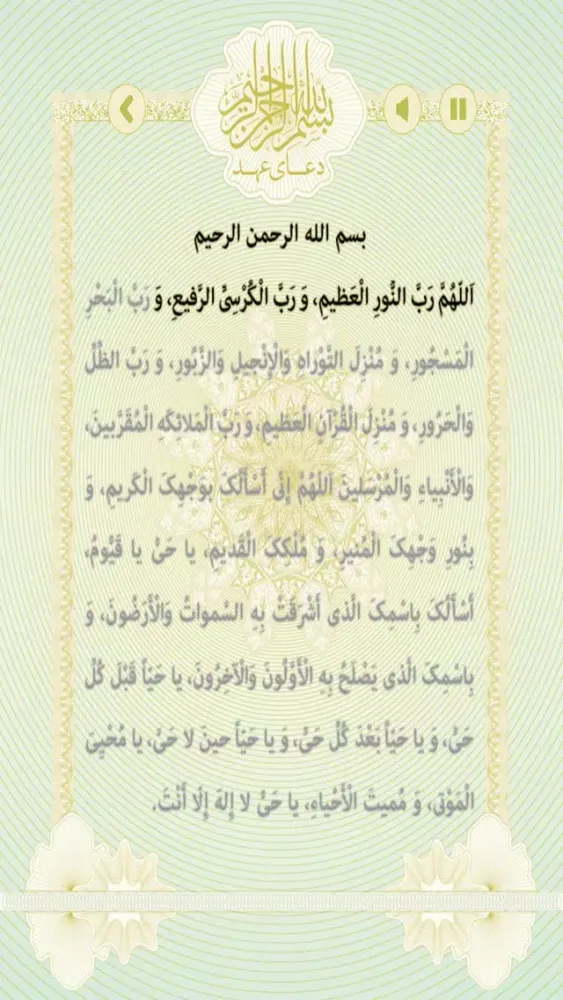 بسم الله الرحمن الرحیم
دعـای عهـد
بسم الله الرحمن الرحیم
اَللّهُمَّ رَبَّ النُّورِ الْعَظیمِ، وَ رَبَّ الْکُرْسِیِّ الرَّفیعِ، وَ رَبَّ الْبَحْرِ
الْمَسْجُورِ، وَ مُنْزِلَ التَّوْراهِ وَالْإِنْجیلِ وَالزَّبُورِ، وَ رَبَّ الظِّلِّ
وَالْحَرُورِ، وَ مُنْزِلَ الْقُرْآنِ الْعَظیمِ، وَ رَبَّ الْمَلائِکَهِ الْمُقَرَّبینَ،
وَالْأَنْبِیاءِ وَالْمُرْسَلینَ اَللّهُمَّ إِنّی أَسْأَلُکَ بِوَجْهِکَ الْکَریمِ، وَ
بِنُورِ وَجْهِکَ الْمُنیرِ، وَ مُلْکِکَ الْقَدیمِ، یا حَیُّ یا قَیُّومُ،
أَسْأَلُکَ بِاسْمِکَ الَّذی أَشْرَقَتْ بِهِ السَّمواتُ وَالْأَرَضُونَ، وَ
بِاسْمِکَ الَّذی یَصْلَحُ بِهِ الْأَوَّلُونَ وَالْآخِرُونَ، یا حَیّاً قَبْلَ کُلِّ
حَیٍّ، وَ یا حَیّاً بَعْدَ کُلِّ حَیٍّ، وَ یا حَیّاً حینَ لا حَیَّ، یا مُحْیِیَ
الْمَوْتی، وَ مُمیتَ الْأَحْیاءِ، یا حَیُّ لا إِلهَ إِلّا أَنْتَ.